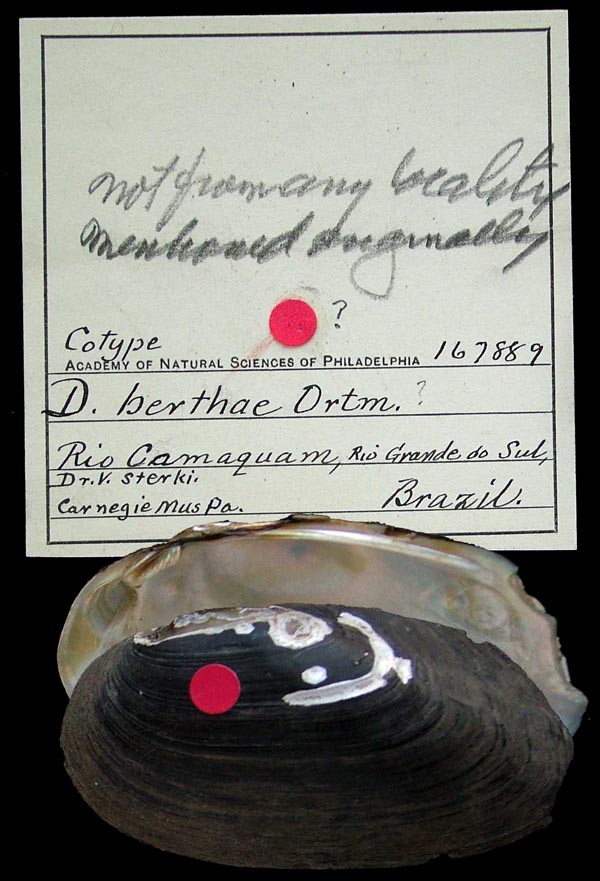 not from any locality
mentioned originally
?
Cotype
ACADEMY OF NATURAL SCIENCES OF PHILADELPHIA 167889
D. berthae Ortm. ?
Rio Camaquam, Rio Grande do Sul,
Dr. V. Sterki.
Carnegie Mus Pa. Brazil.